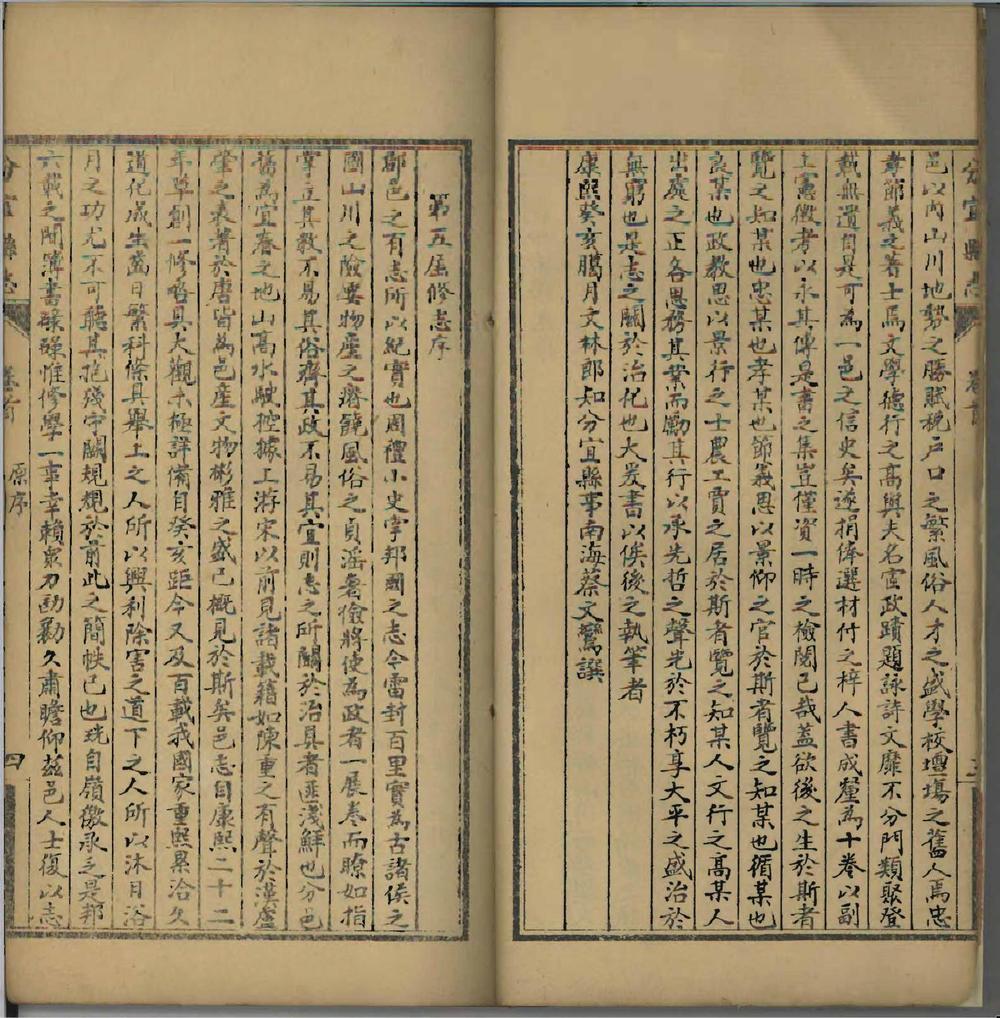 分宜縣志
卷首
三
邑以內山川地勢之勝賦稅戶口之繁風俗人才之盛學校壇場之舊人焉忠
孝節義之著士焉文學德行之高與夫名宦政蹟題詠詩文靡不分門類聚登
載無遺自是可為一邑之信史矣遂捐俸選材付之梓人書成釐為十卷以副
上憲徵考以永其傳是書之集豈僅資一時之檢閱已哉蓋欲後之生於斯者
覽之知某也忠某也孝某也節義思以景仰之官於斯者覽之知某也循某也
良某也政教思以景行之士農工賈之居於斯者覽之知某人文行之高某人
出處之正各思務其業而勵其行以承先哲之聲光於不朽享大平之盛治於
無窮也是志之關於治化也大爰書以俟後之執筆者
康熙癸亥臈月文林郎知分宜縣事南海蔡文鸞譔
第五屆修志序
郡邑之有志所以紀實也周禮小史掌邦國之志今雷封百里實為古諸侯之
國山川之險要物產之瘠饒風俗之貞淫奢儉將使為政者一展卷而瞭如指
掌立其教不易其俗齊其政不易其宜則志之所關於治具者匪淺鮮也分邑
舊為宜春之地山高水駛控據上游宋以前見諸載籍如陳重之有聲於漢盧
肇之表著於唐皆為邑產文物彬雅之盛已概見於斯矣邑志自康熙二十二
年草創一修咯具大觀未極詳備自癸亥距今又及百載我國家重熙累洽久
道化成生齒日繁科條具舉上之人所以興利除害之道下之人所以沐日浴
月之功尤不可聽其抱殘守闕規規於前此之簡帙已也珖自嶺徼承乏是邦
六載之間簿書碌碌惟修學一事幸賴眾力劻勷久肅瞻仰茲邑人士復以志
分宜縣志
卷首
原序
四